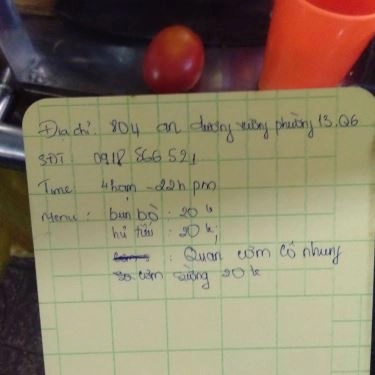 Địa chỉ: 804 an dương vương phường 13.Q6
SĐT: 0918 566 521
Time: 4h am - 22h pm
Menu: bún bò: 20 k
hủ tíu: 20 k;
: Quan cơm có nhưng
cơm sường 20 k